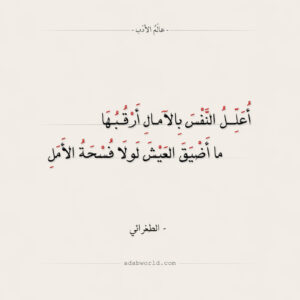 - عالم الأدب -
أُعَلِّـلُ النَّفْسَ بِالآمالِ أَرْقُـبُـهَا
ما أَضْيَقَ العَيْشَ لَولَا فُسْحَةُ الأَمَلِ
- الطغرائي
adabworld.com